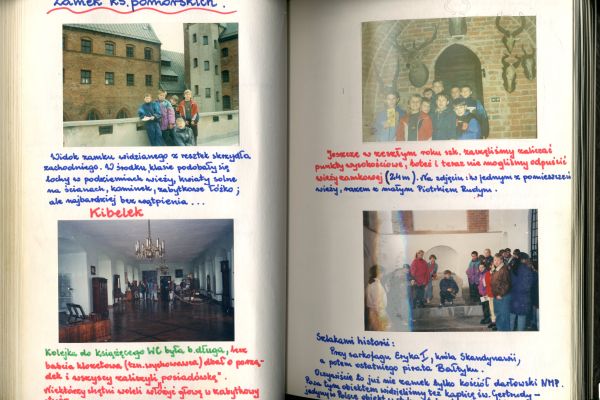 Zamek ks. pomorskich.
Widok zamku widzianego z resztek skrzydła
zachodniego. W środku klasie podobały się
lochy w podziemiach wieży, kwiaty solne
na ścianach, kominek, zabytkowe łóżko;
ale najbardziej bez wątpienia...
Kibelek
Kolejka do książęcego WC była b. długa, lecz
babcia klozetowa (tzn. wychowawca) dbał o porzą-
dek i wszyscy zaliczyli "posiadówkę".
Niektórzy chętni woleli włożyć głowę w zabytkowy
Jeszcze w zeszłym roku szk. zaczęliśmy zaliczać
punkty wysokościowe, toteż i teraz nie mogliśmy odpuścić
wieży zamkowej (24m). Na zdjęciu: w jednym z pomieszczeń
wieży, razem z małym Piotrkiem Rudym.
Szlakami historii:
Przy sarkofagu Eryka I, króla Skandynawii,
a potem ostatniego pirata Bałtyku.
Oczywiście to już nie zamek tylko kościół darłowski NMP.
Poza tym obiektem widzieliśmy też kaplicę św. Gertrudy-
jedyny w Polsce obiekt